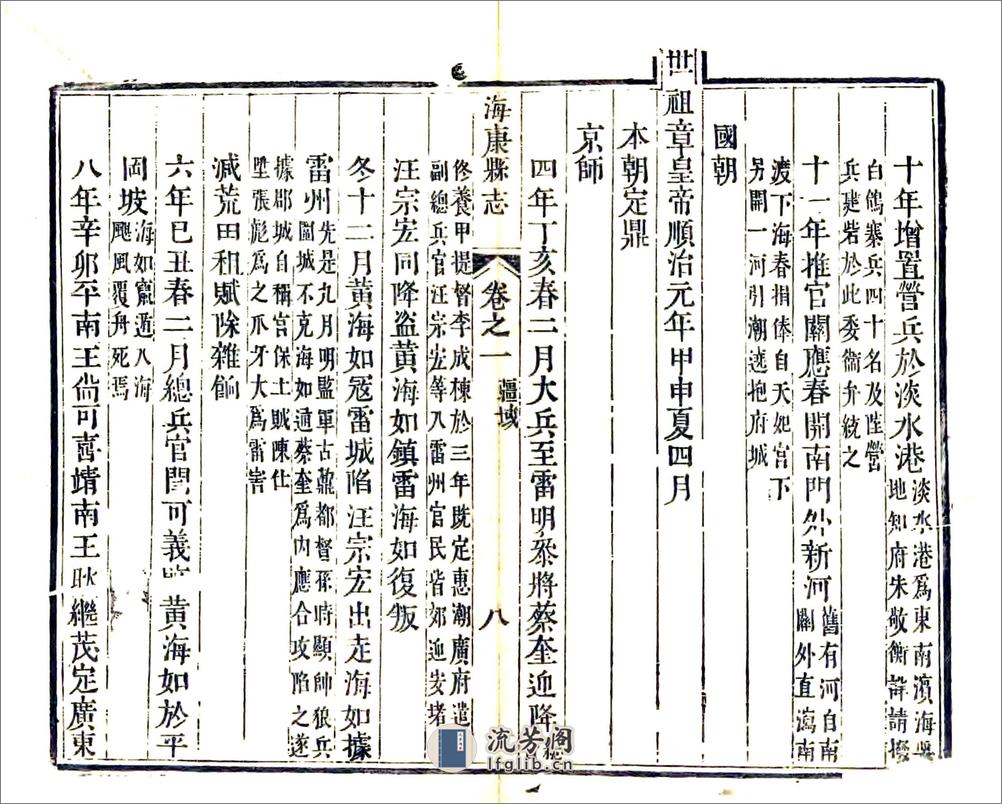 十年增置營兵於淡水港淡水港爲東南濱海要
地知府朱敬衡詳請撥
白鴿寨兵四十名及陸營
兵建砦於此委衞弁統之
十一年推官關應春開南門外新河舊有河自南
關外直瀉南
渡下海春捐俸自天妃宮下
另開一河引潮遶抱府城
國朝
世祖章皇帝順治元年甲申夏四月
本朝定鼎
京師
四年丁亥春二月大兵至雷明叅將蔡奎迎降總
海康縣志 卷之一 疆域 八
修養甲提督李成棟於三年既定惠潮廣府遣
副總兵官汪宗宏等入雷州官民皆郊迎安堵
汪宗宏同降盜黃海如鎮雷海如復叛
冬十二月黃海如冦雷城陷汪宗宏出走海如據
雷州先是九月明監軍古鼎都督孫時顯帥狼兵
圍城不克海如通蔡奎爲内應合攻陷之遂
據郡城自稱宫保土賊陳仕
墅張彪爲之爪牙大爲雷害
減荒田租賦除雜餉
六年己丑春二月總兵官閻可義敗黃海如於平
岡坡海如竄遁入海
颶風覆舟死焉
八年辛卯平南王尙可喜靖南王耿繼茂定廣東
流芳阁
lfglib.cn